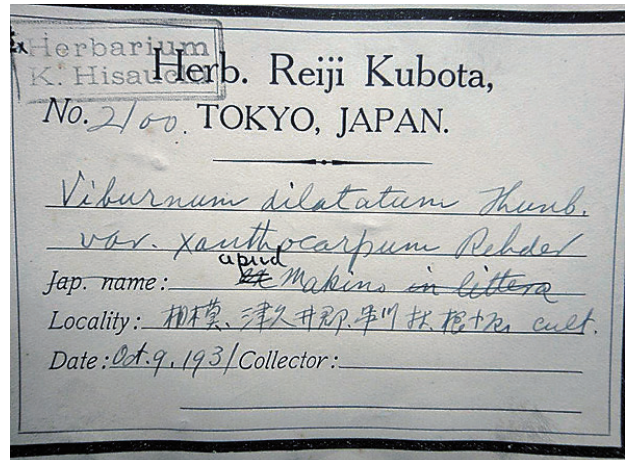 Ex Herbarium
K. Hisauchi
Herb. Reiji Kubota,
No. 2100. TOKYO, JAPAN.
Viburnum dilatatum Thunb.
var. xanthocarpum Rehder
apud
Jap. name: Makino in littera
Locality: 相模、津久井郡、串川村 cult.
Date: Oct. 9, 1931 Collector: